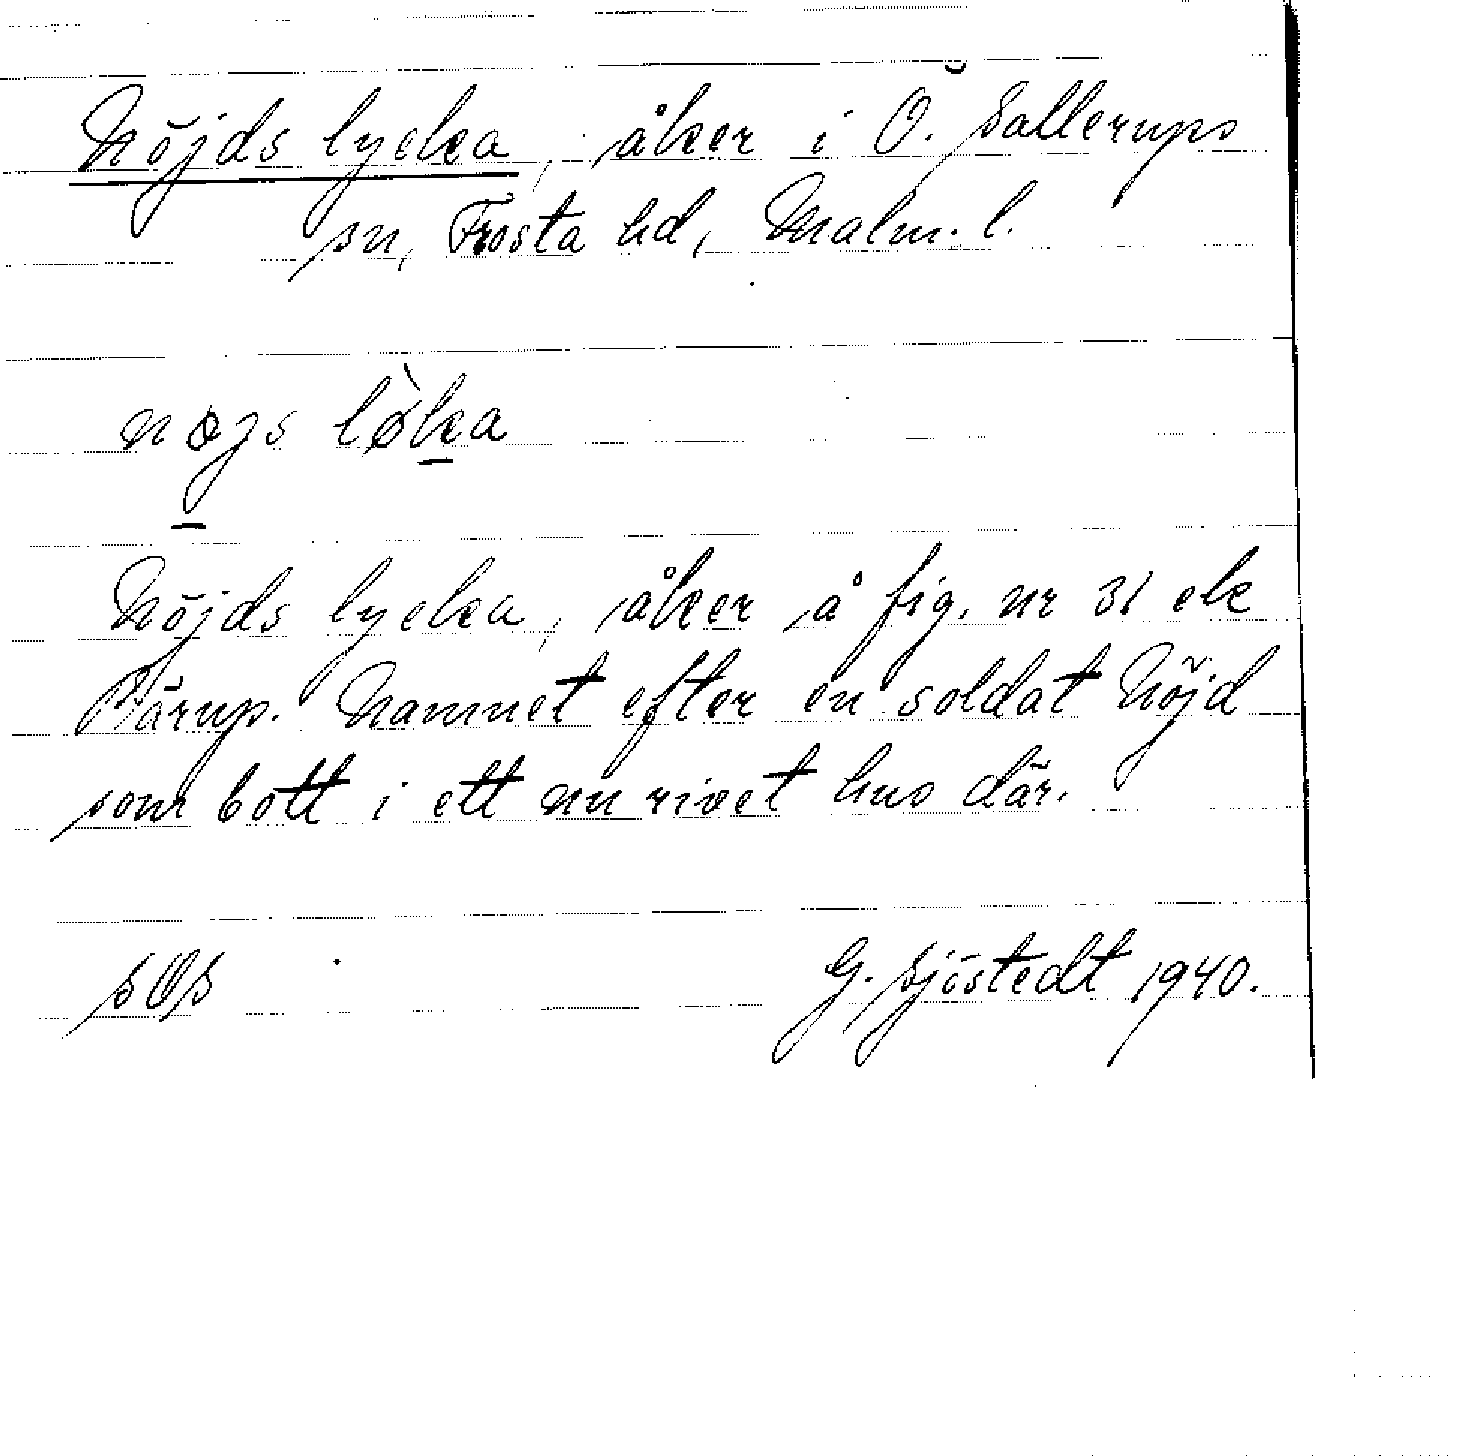 Nöjds lycka, åker i Ö. Sallerups
sn, Frosta hd, Malm. l.
nøjs lø̀ka
Nöjds lycka, åker å fig. nr 31 ek
Pärup. Namnet efter en soldat Nöjd
som bott i ett nu rivet hus där.
SOS G. Sjöstedt 1940.